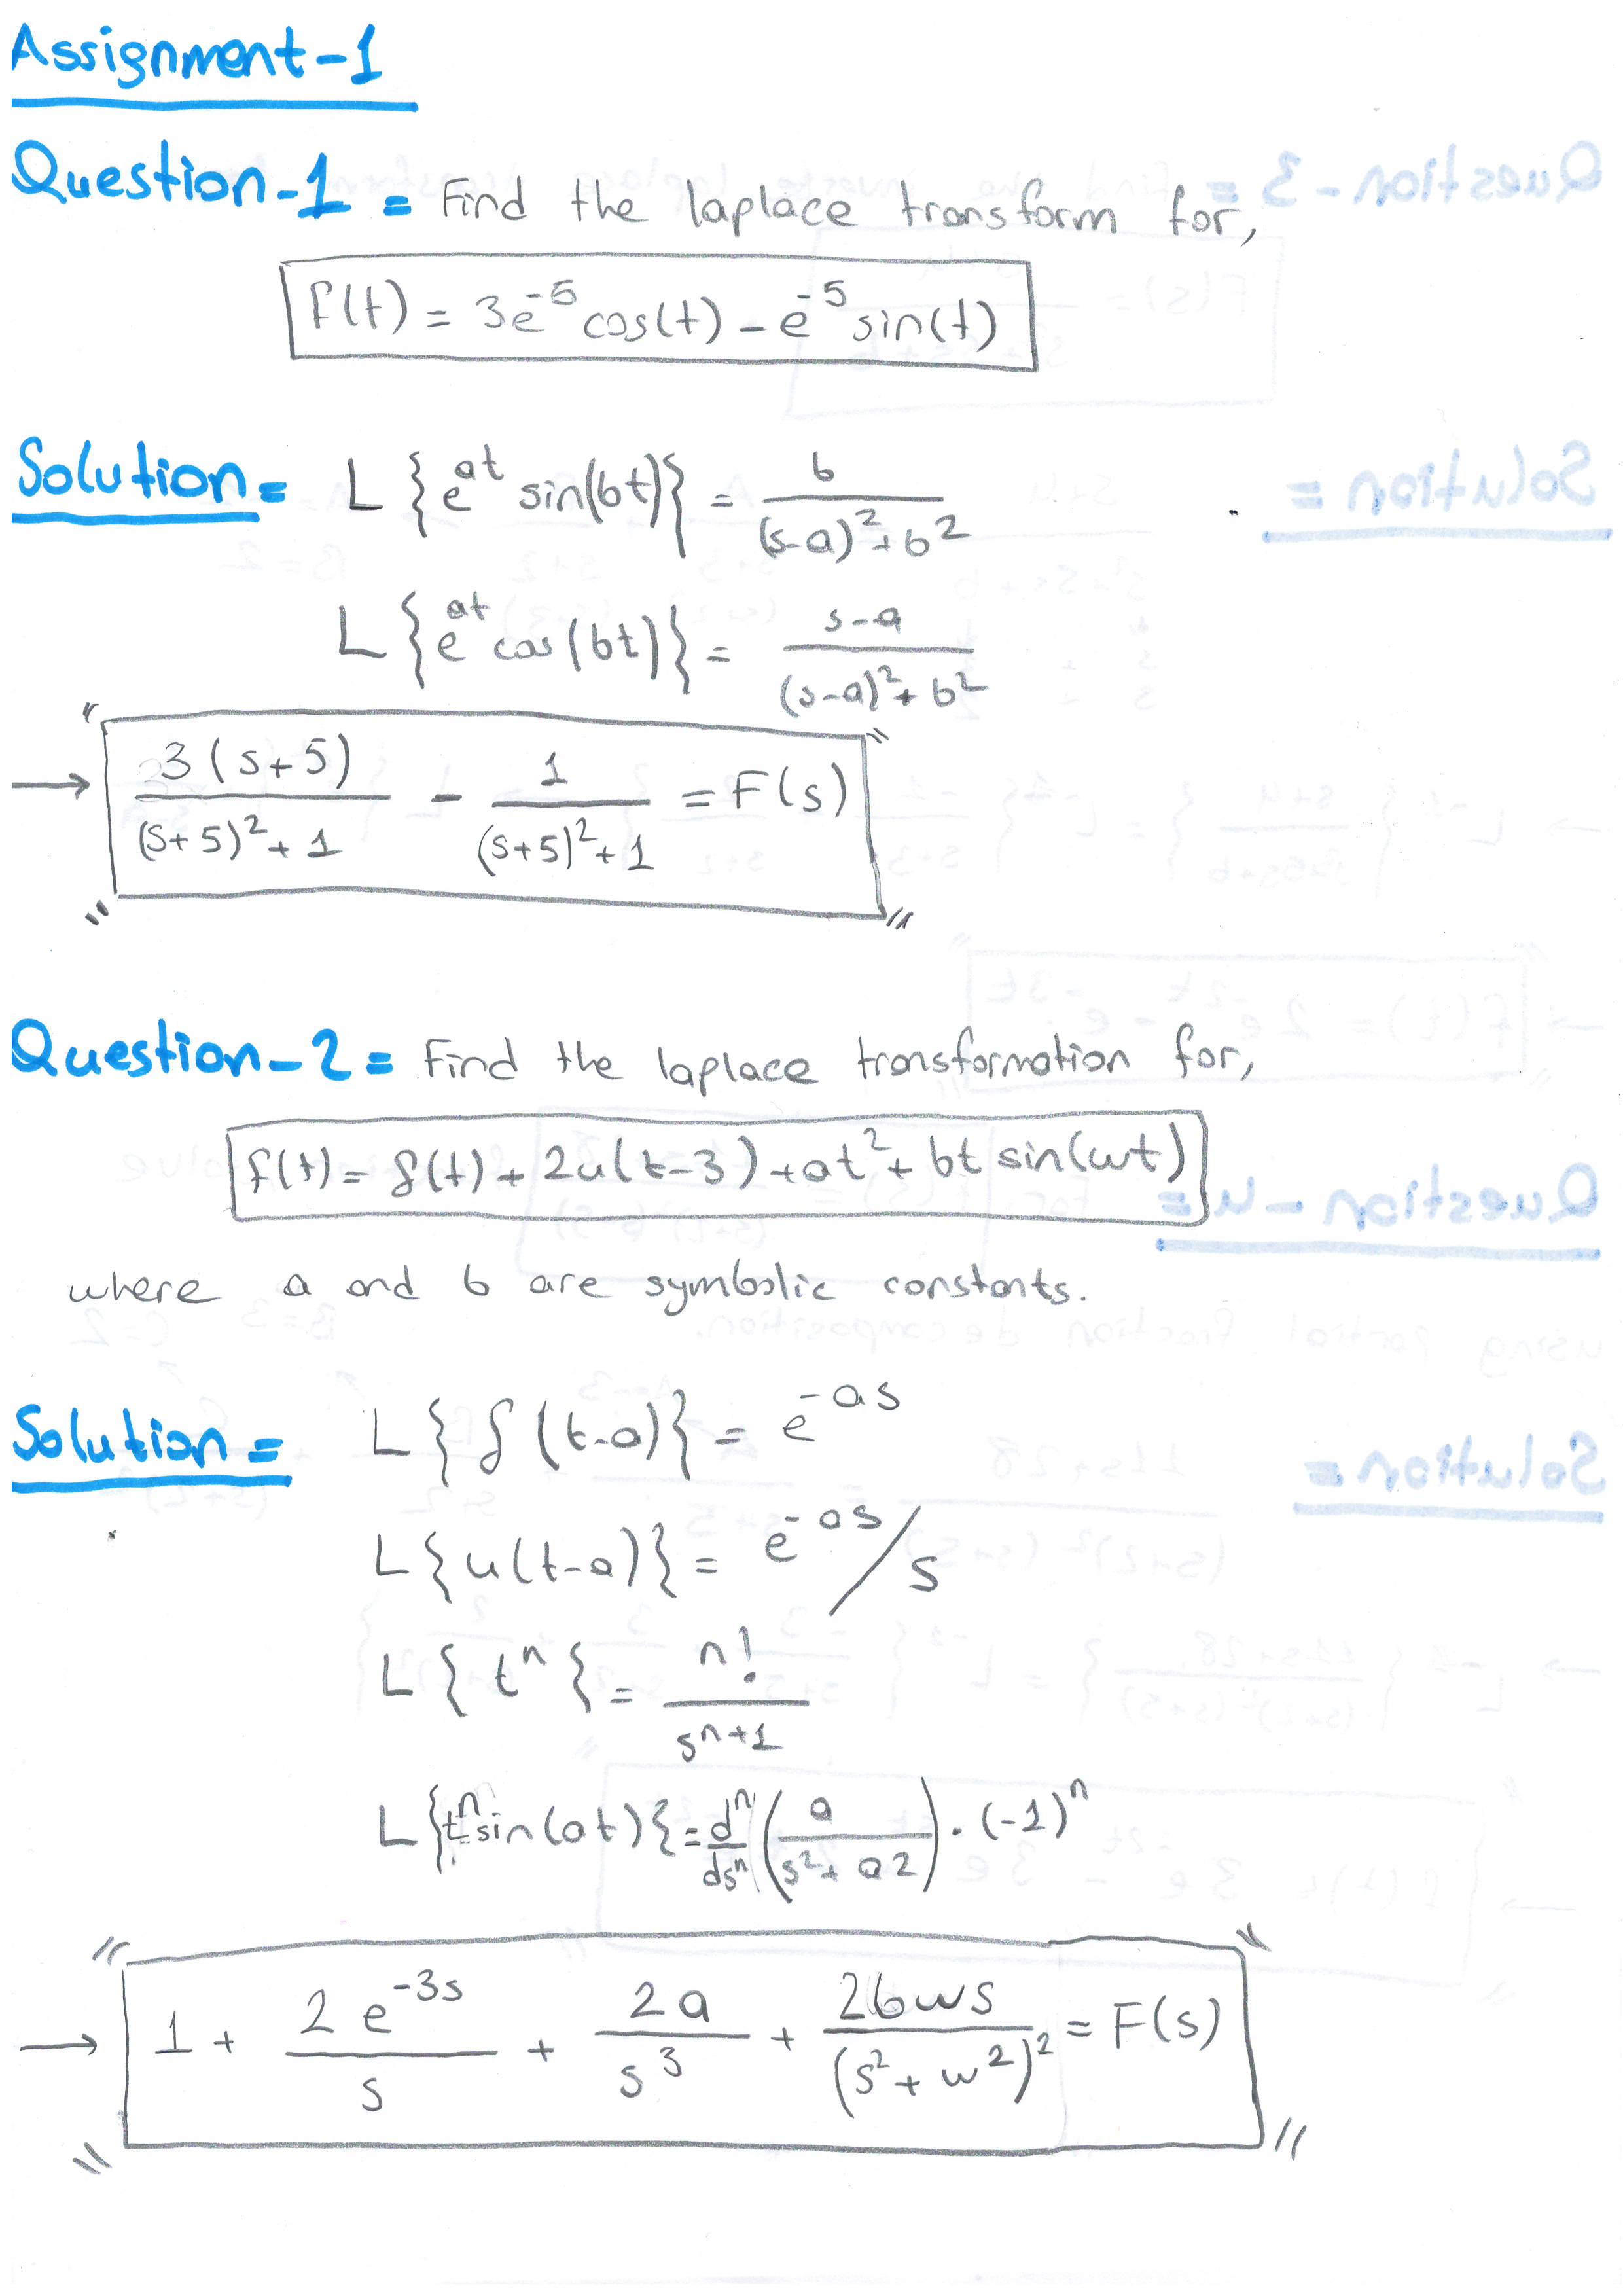 Assignment-1
Question-1 = Find the laplace transform for,
f(t) = 3e^-5 cos(t) - e^-5 sin(t)
Solution = L{e^at sin(bt)} = b/((s-a)^2+b^2)
L{e^at cos(bt)} = s-a/((s-a)^2+b^2)
→ 3(s+5)/((s+5)^2+1) - 1/((s+5)^2+1) = F(s)
Question-2 = Find the laplace transformation for,
f(t) = δ(t) + 2u(t-3) + at^2 + bt sin(wt)
where a and b are symbolic constants.
Solution = L{δ(t-a)} = e^-as
L{u(t-a)} = e^-as/s
L{t^n} = n!/s^n+1
L{t^n sin(at)} = d^n/ds^n (a/(s^2+a2)) . (-1)^n
→ 1 + 2e^-3s/s + 2a/s^3 + 2bws/(s^2+w^2)^2 = F(s)